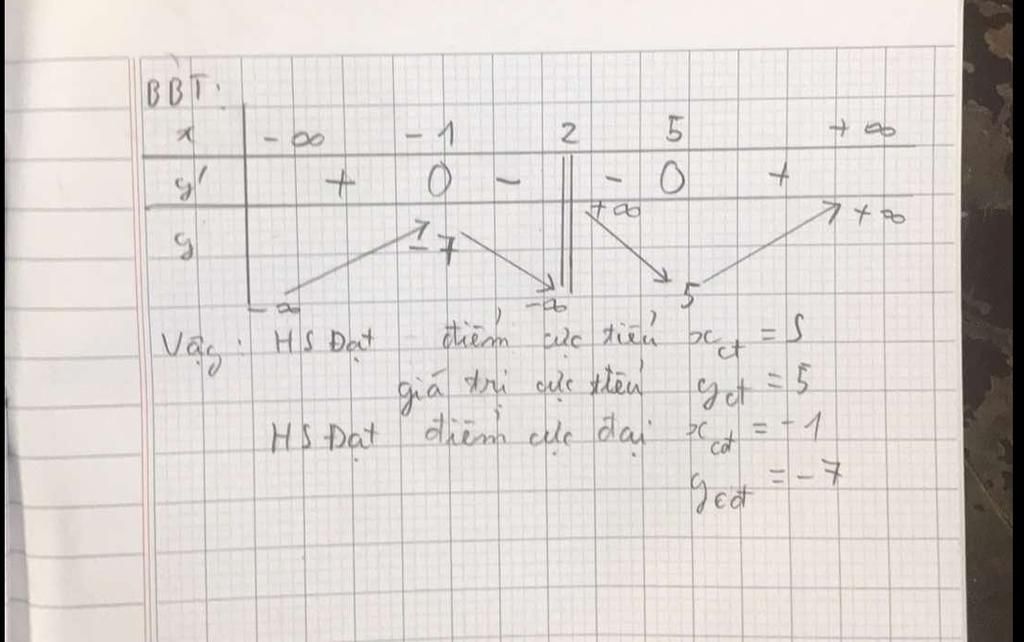 BBT:
x -∞ -1 2 5 +∞
y' + 0 - || - 0 +
y -∞ -7 -∞ || +∞ 5 +∞
Vậy: HS Đạt điểm cực tiểu x_ct = 5
giá trị cực tiểu y_ct = 5
HS Đạt điểm cực đại x_cđ = -1
y_cđ = -7